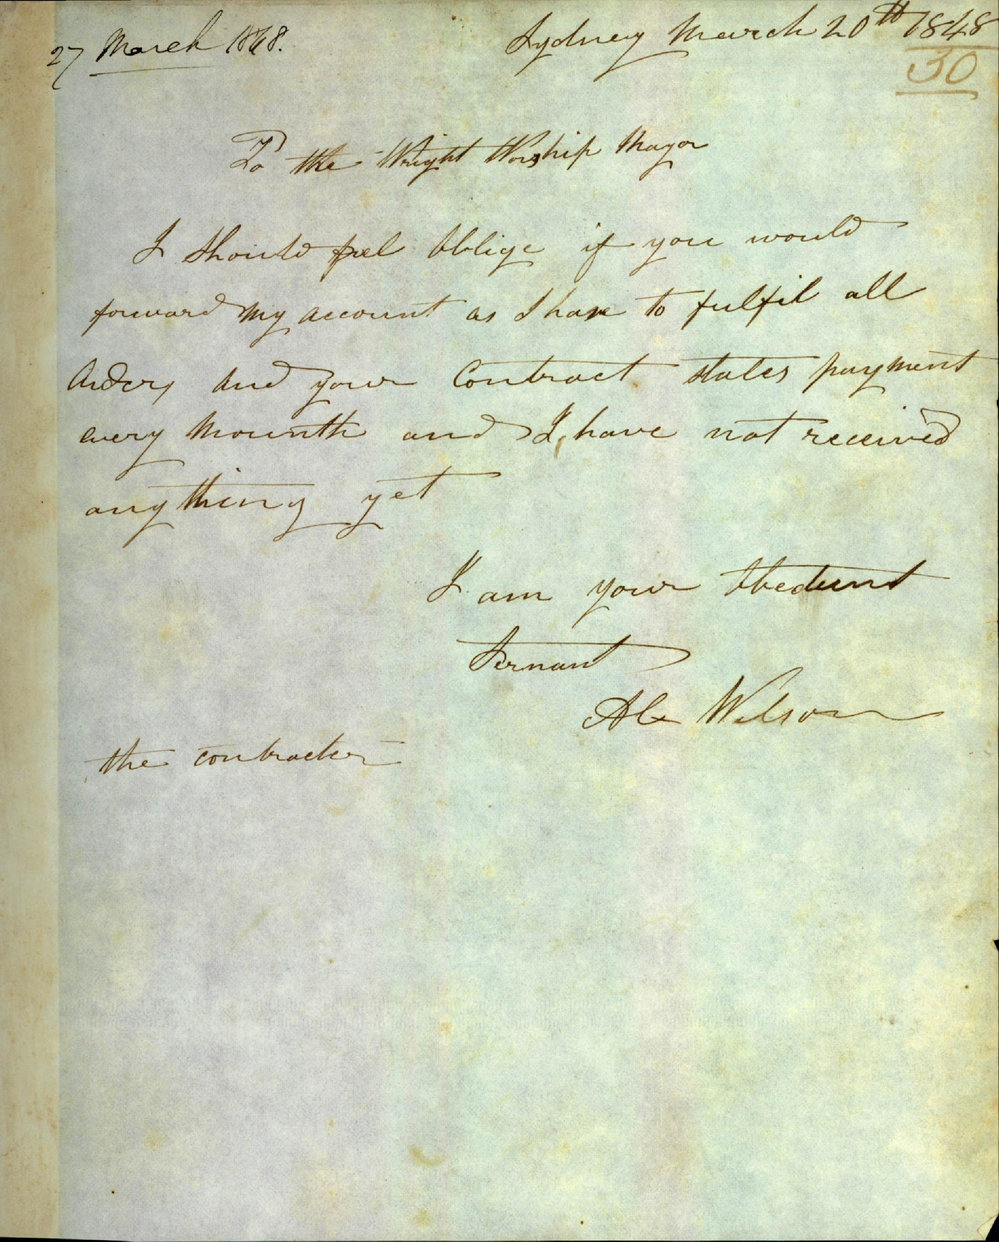 27 March 1848.
Sydney March 20th 1848
30
To the Wright Worship Mayor
I should feel Oblige if you would
forward my account as I have to fulfil all
Orders, and your Contract states payment
every Mounth and I, have not received
anything yet
I am your Obedient
Servant
Alx Wilson
the contracter